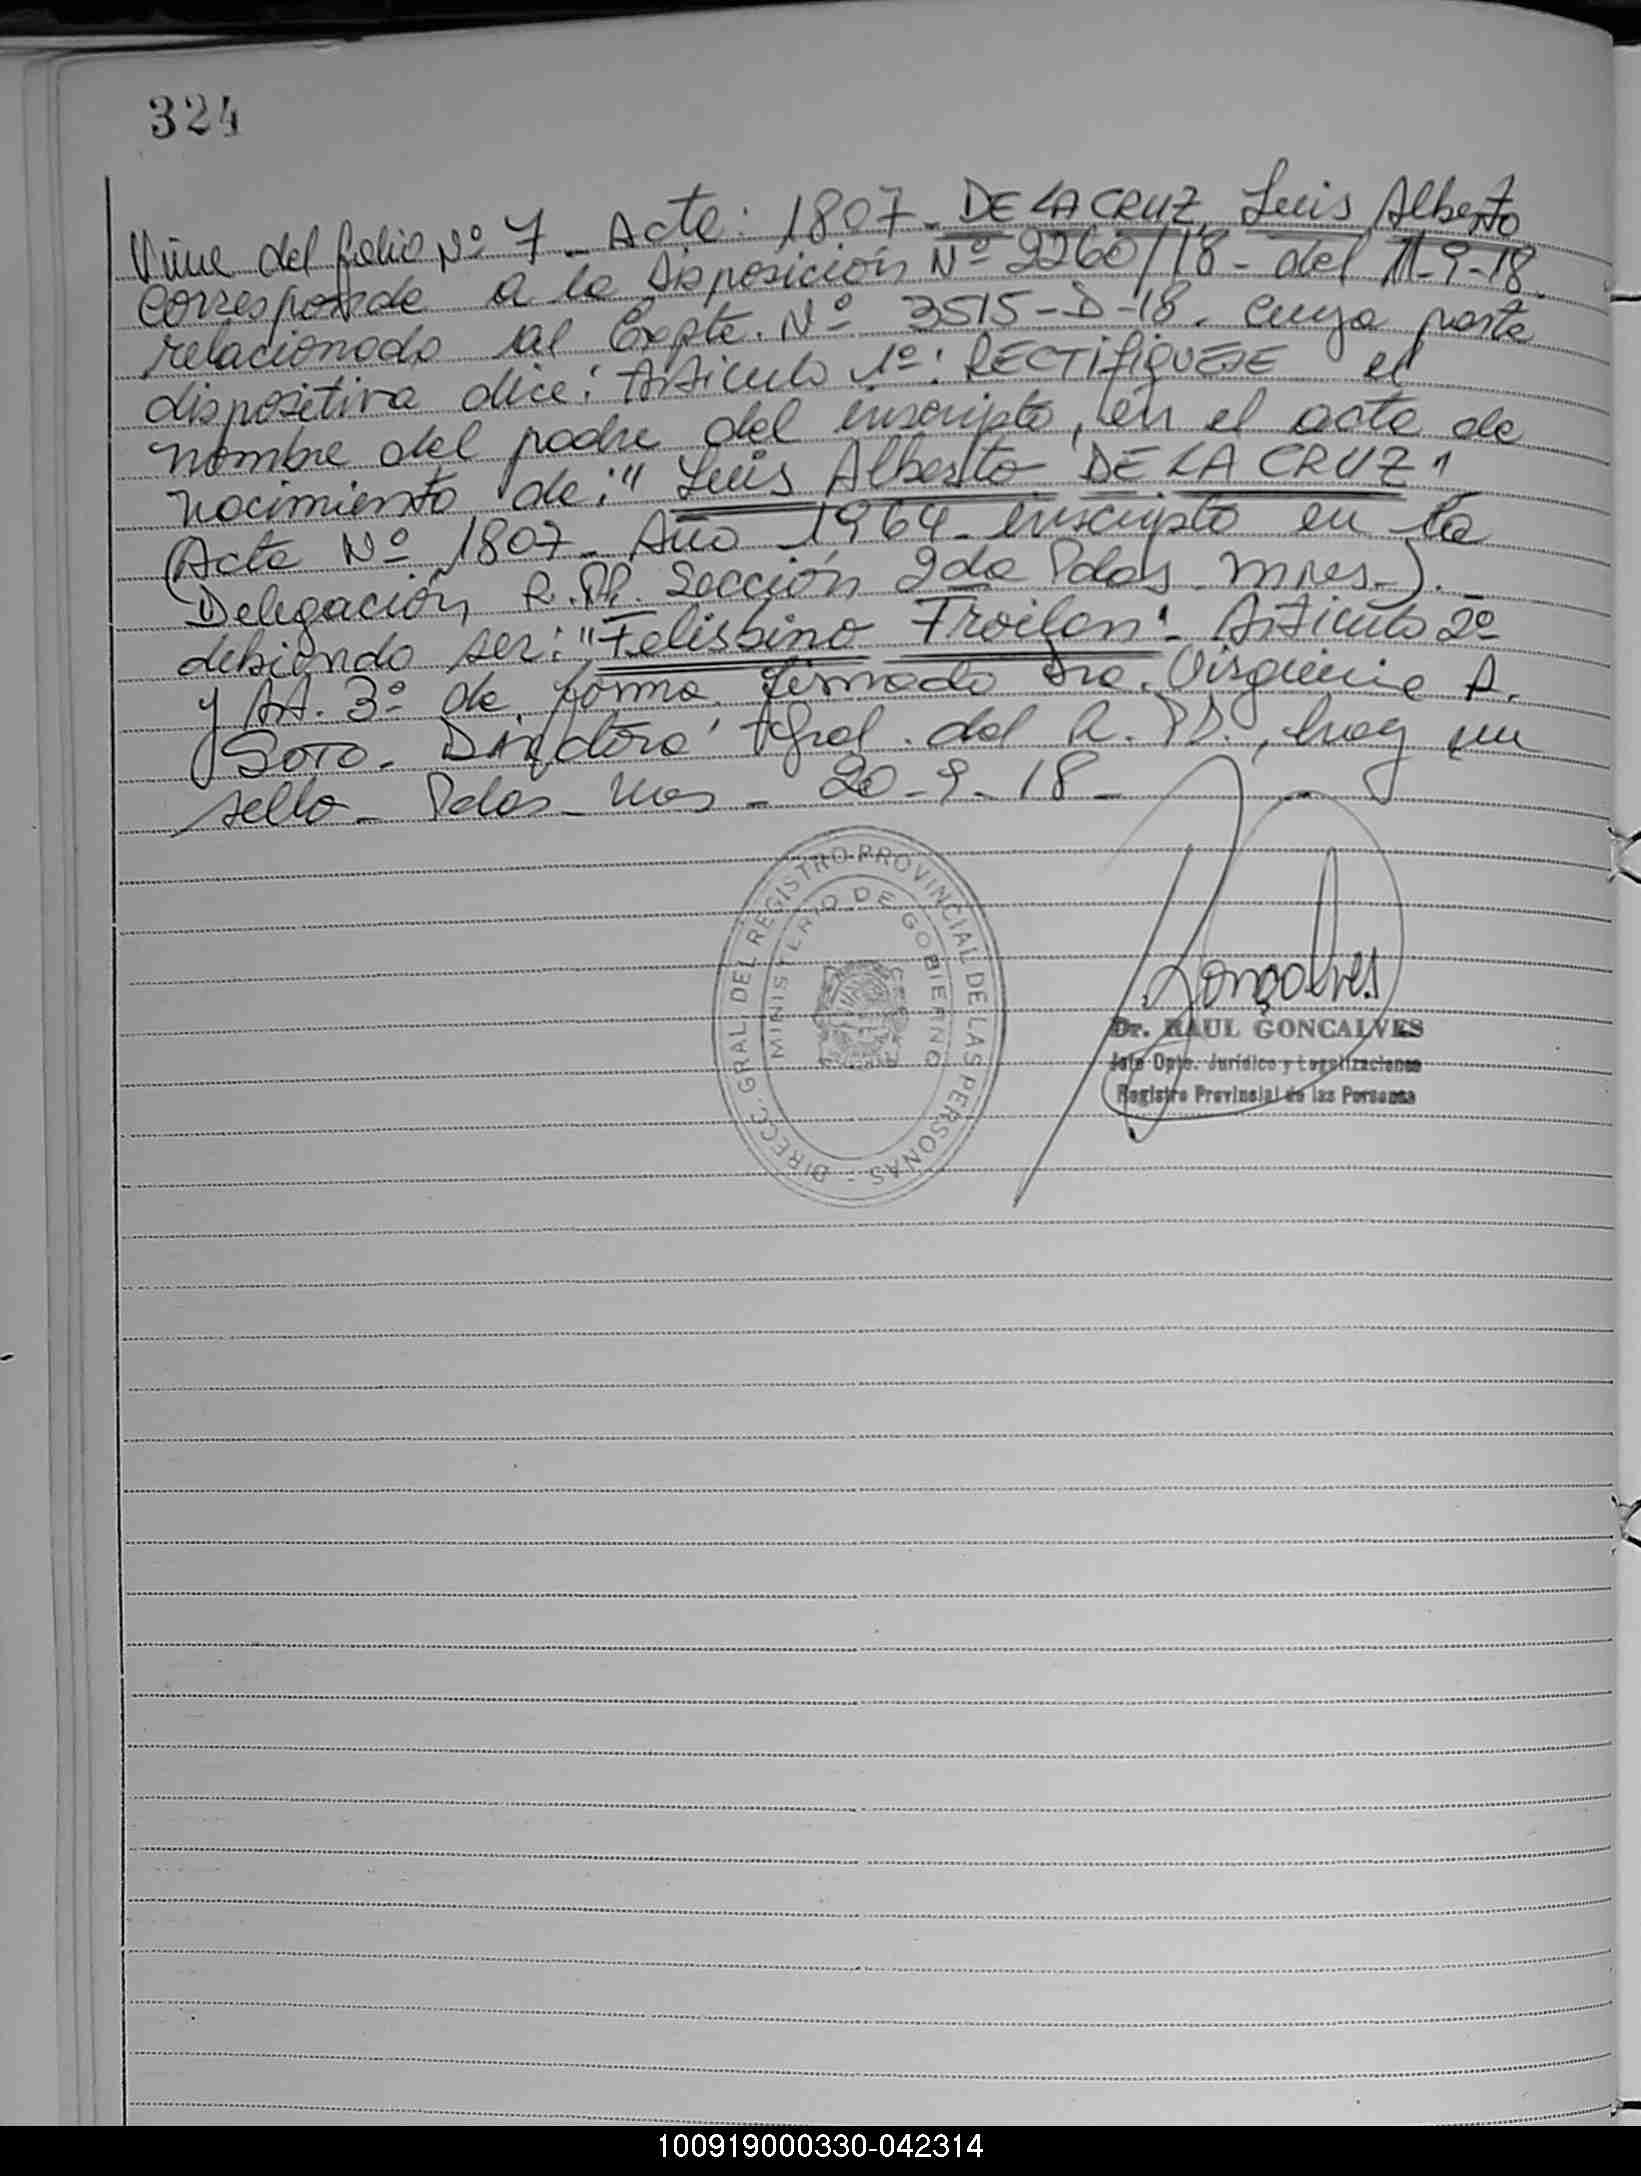 324
Viene del folio Nº 7 - Acta: 1807 - DE LA CRUZ, Luis Alberto
corresponde a la Disposición Nº 2260/18 - del 11-9-18.
relacionado al Expte. Nº 3515-D-18. cuya parte
dispositiva dice: Artículo 1º: RECTIFIQUESE el
nombre del padre del inscripto, en el acta de
nacimiento de: "Luis Alberto DE LA CRUZ"
(Acta Nº 1807 - Año 1964 - inscripto en la
Delegación R.PP. Sección 2da Pdas. Mnes.-).
debiendo ser: "Felisbino Froilan". Artículo 2º
y Art. 3º de forma. firmado Dra. Virginia A.
Soto. Directora Gral. del R.PP., hay un
sello - Pdas - Mnes - 20-9-18 -
DIRECC. GRAL. DEL REGISTRO PROVINCIAL DE LAS PERSONAS -
MINISTERIO DE GOBIERNO
Gonçalves
Dr. RAUL GONCALVES
Jefe Dpto. Jurídico y Legalizaciones
Registro Provincial de las Personas
100919000330-042314